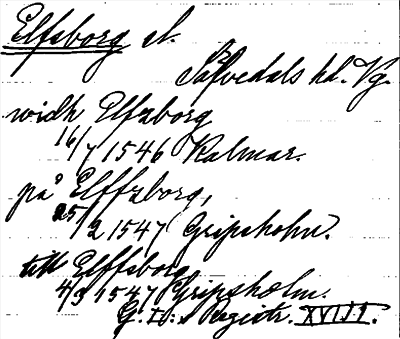 Elfsborg sl.
Sävedals hd. Vg.
widh Elfzborg
16/7 1546 Kalmar.
på Elffzborg,
25/2 1547 Gripsholm.
till Elffsborg
4/3 1547 Gripsholm.
G. I:s Registr. XVIII.